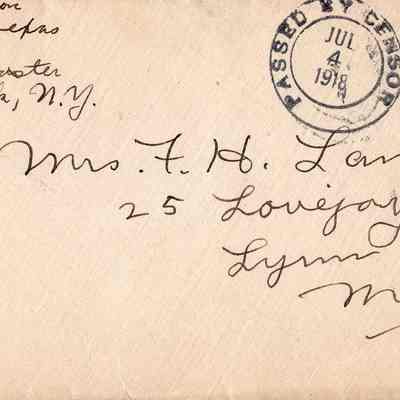 Texas
N.Y.
PASSED BY CENSOR
JUL
4
1918
Mrs. F. H. Lan
25 Lovejoy
Lynn
M